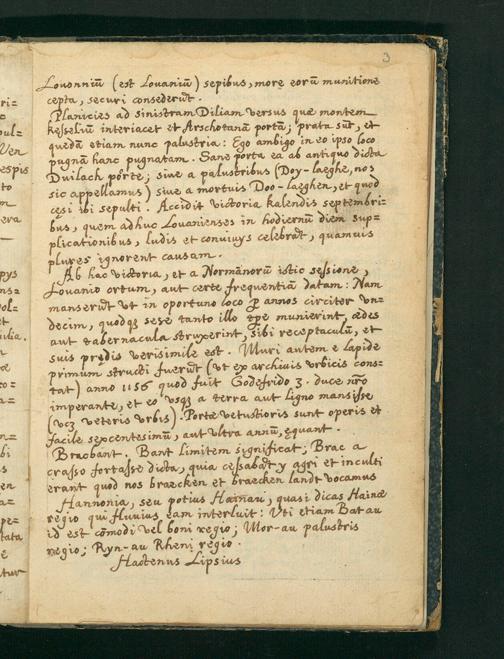 3
Lovonniū (est Lovaniū) sepibus, more eorū munitione
cepta, securi consederūt.
Planicies ad sinistram Diliam versus quæ montem
kesseliū interiacet et Arschotanā portā; prata sūt, et
quedā etiam nunc palustria: Ego ambigo in eo ipso loco
pugnā hanc pugnatam. Sane porta ea ab antiquo dicta
Duilach pōrte; siue a palustribus (Doy-laeghe, nos
sic appellamus) siue a mortuis Doo-laeghen, et quod
cesi ibi sepulti. Accidit victoria kalendis septembri-
bus, quem adhuc Lovanienses in hodiernū diem sup-
plicationibus, ludis et conuiuys celebrāt, quamuis
plures ignorent causam.
Ab hac victoria, et a Normānorū istic sessione,
Lovanio ortum, aut certe frequentiā datam: Nam
manserūt vt in oportuno loco ꝑ annos circiter vn-
decim, quodqȝ sese tanto illo tpe munierint, ædes
aut tabernacula struxerint, sibi receptaculū, et
suis prędis verisimile est. Muri autem e lapide
primum structi fuerūt (vt ex archiuis vrbicis cons-
tat) anno 1156 quod fuit Godefrido 3. duce nr̄o
imperante, et eo vsqȝ a terra aut ligno mansisse
(vcȝ veteris vrbis). Portæ vetustioris sunt operis et
facile sexcentesimū, aut vltra annū, ęquant.
Bracbant. Bant limitem significat; Brac a
crasso fortasse dicta, quia cessabāt y agri et inculti
erant quod nos braecken et braecken landt vocamus
Hannonia, seu potius Hainau, quasi dicas Hainæ
regio qui fluuius eam interluit: Vti etiam Batau
id est cōmodi vel boni regio; Mor-au palustris
regio; Ryn-au Rheni regio.
Hactenus Lipsius